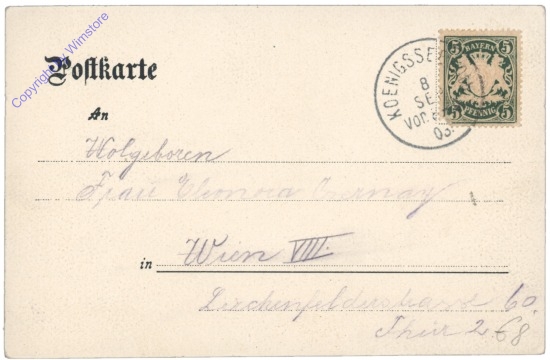 Copyright by Wimstore
Postkarte
An
KOENIGSSEE
8
SE
VOR.
03.
5 BAYERN 5
5 PFENNIG 5
Wolgeboren
Frau Eleonora
in Wien VIII.
Lerchenfelderstrasse 60.
Thür 2 68